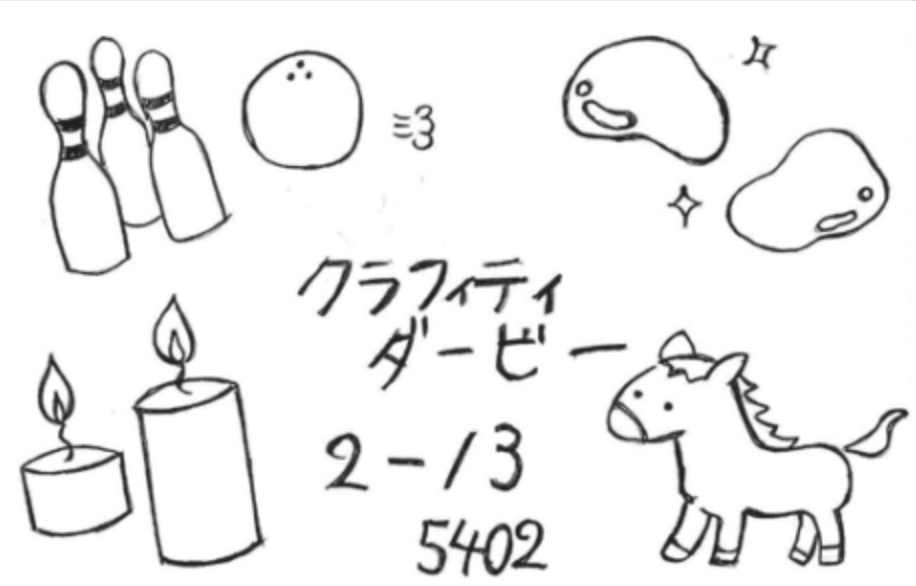 クラフィティ
ダービー
2-13
5402